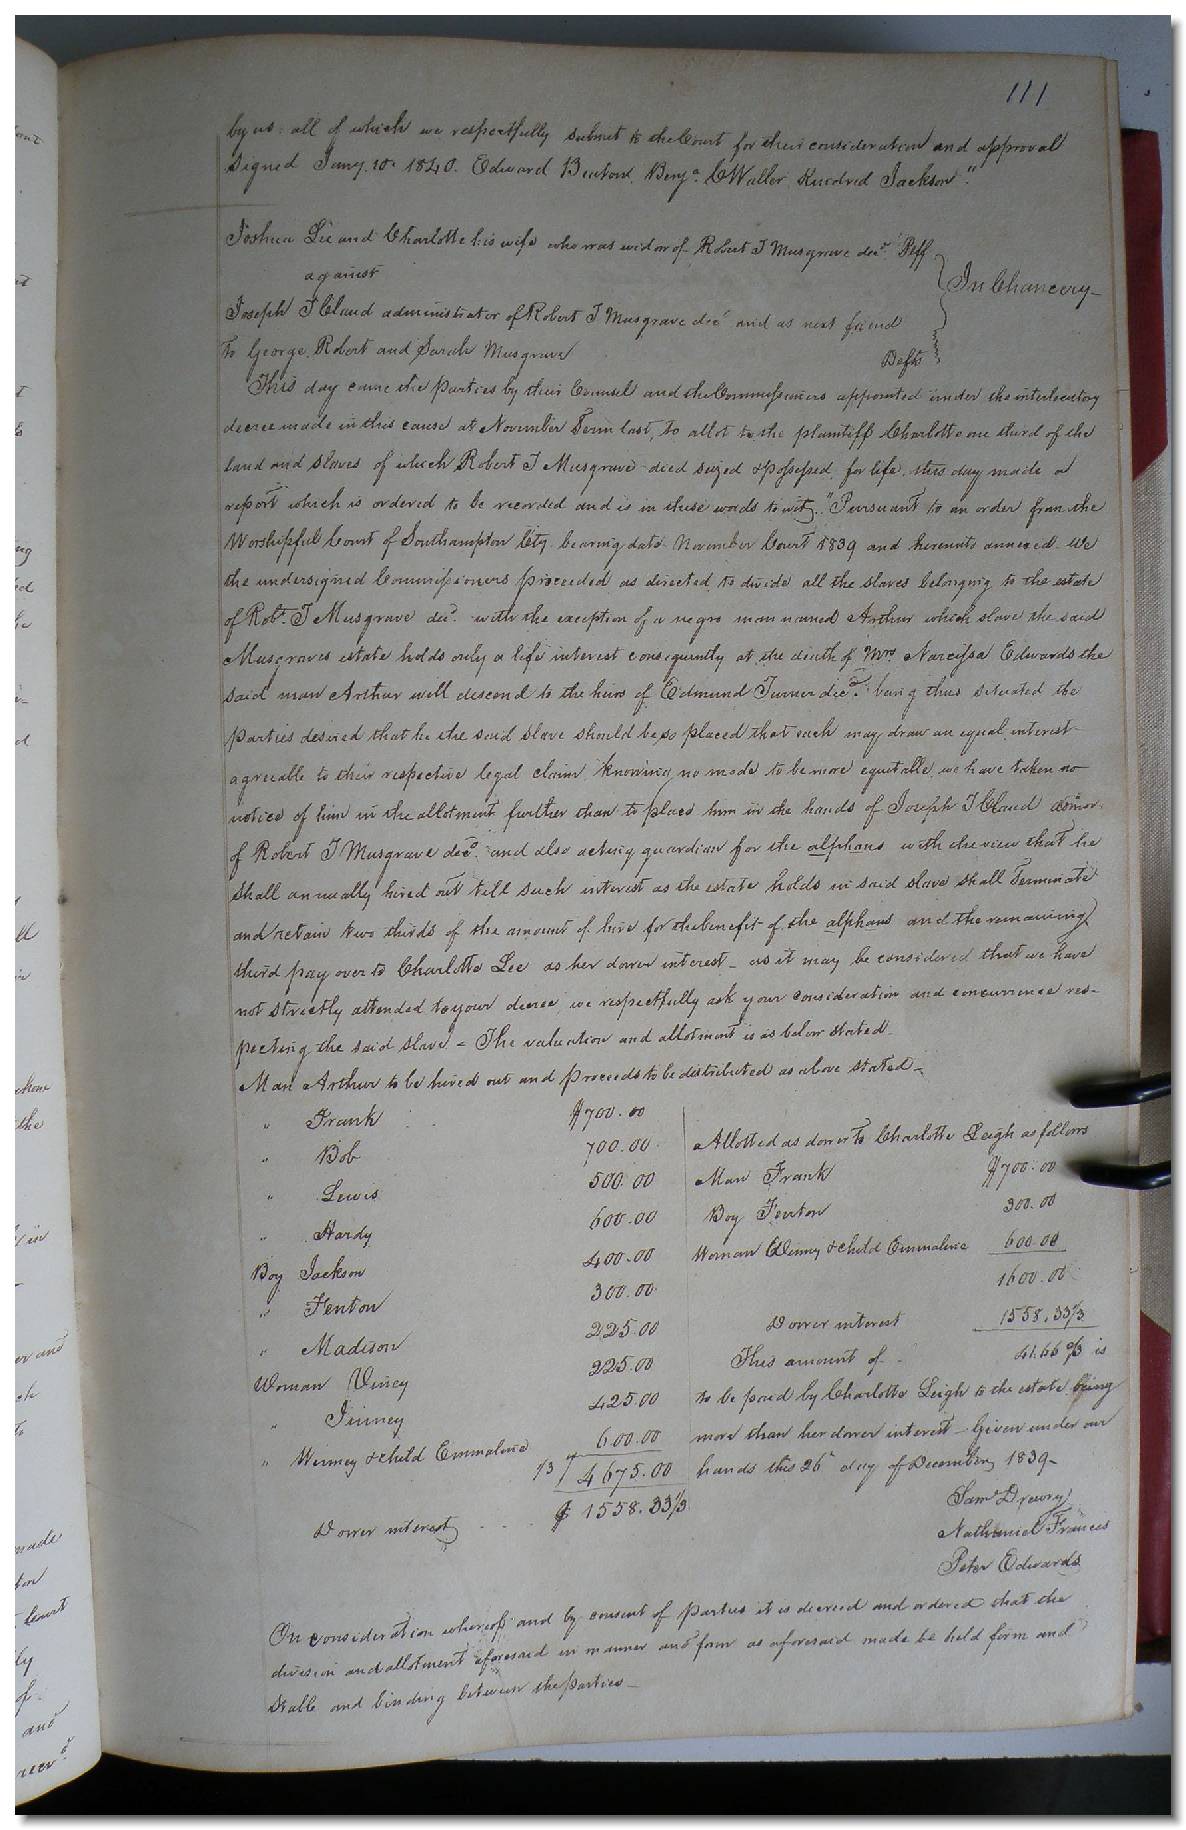 111
by us: all of which we respectfully submit to the Court for their consideration and approval
Signed Jany. 10. 1840. Edward Beaton, Benja. C Waller, Kindred Jackson"
Joshua Lee and Charlotte his wife who was widow of Robert T Musgrave decd. Plff
against
In Chancery
Joseph T Claud administrator of Robert T Musgrave decd and as next friend
To George, Robert and Sarah Musgrave Defts
This day came the parties by their Counsel and the Commissioners appointed under the interlocutory
decree made in this cause at November Term last, to allot to the plaintiff Charlotte one third of the
land and slaves of which Robert T Musgrave died seized & possessed, for life, this day made a
report which is ordered to be recorded and is in these words to wit, "Pursuant to an order from the
Worshipful Court of Southampton Cty. bearing date November Court 1839 and hereunto annexed. We
the undersigned Commissioners proceeded as directed to divide all the slaves belonging to the estate
of Robt. T Musgrave decd. with the exception of a negro man named Arthur which slave the said
Musgraves estate holds only a life interest consequently at the death of Mrs Narcissa Edwards the
said man Arthur will descend to the heirs of Edmund Turner decd. being thus situated the
parties desired that he the said slave should be so placed that each may draw an equal interest
agreeable to their respective legal claim, knowing no mode to be more equitable, we have taken no
notice of him in the allotment further than to place him in the hands of Joseph T Claud admor.
of Robert T Musgrave decd. and also acting guardian for the alphans with the view that he
shall annually hired out till such interest as the estate holds in said slave shall Terminate
and retain two thirds of the amount of hire for the benefit of the alphans and the remaining
third pay over to Charlotte Lee as her dower interest - as it may be considered that we have
not strictly attended to your decree, we respectfully ask your consideration and concurrence res-
pecting the said slave - The valuation and allotment is as below stated.
Man Arthur to be hired out and proceeds to be distributed as above stated -
" Frank $700.00
" Bob 700.00
" Lewis 500.00
" Hardy 600.00
Boy Jackson 400.00
" Fenton 300.00
" Madison 225.00
Woman Viney 225.00
" Jinney 425.00
" Winney & child Emmaline 600.00
1/3 4675.00
Dower interest $1558.33⅓
Allotted as dower to Charlotte Leigh as follows
Man Frank $700.00
Boy Fenton 300.00
Woman Winney & child Emmaline 600.00
1600.00
Dower interest 1558.33⅓
This amount of 41.66⅔ is
to be paid by Charlotte Leigh to the estate being
more than her dower interest - Given under our
hands this 26th day of December, 1839 -
Saml Drewry
Nathaniel Francis
Peter Edwards
On consideration whereof and by consent of parties it is decreed and ordered that the
division and allotment aforesaid in manner and form as aforesaid made be held firm and
Stable and binding between the parties -